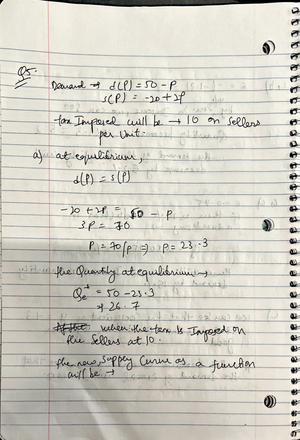 Q5.
Demand → d(P) = 50 - P
s(P) = -20 + 2P
tax Imposed will be → 10 on Sellers
per Unit.
a) at equilibrium,
d(P) = s(P)
-20 + 2P = 50 - P
3P = 70
P = 70/P ⇒ P = 23.3
the Quantity at equilibrium →
= 50 - 23.3
→ 26.7
when the tax is Imposed on
the Sellers at 10.
the new Supply Curve as a function
will be →